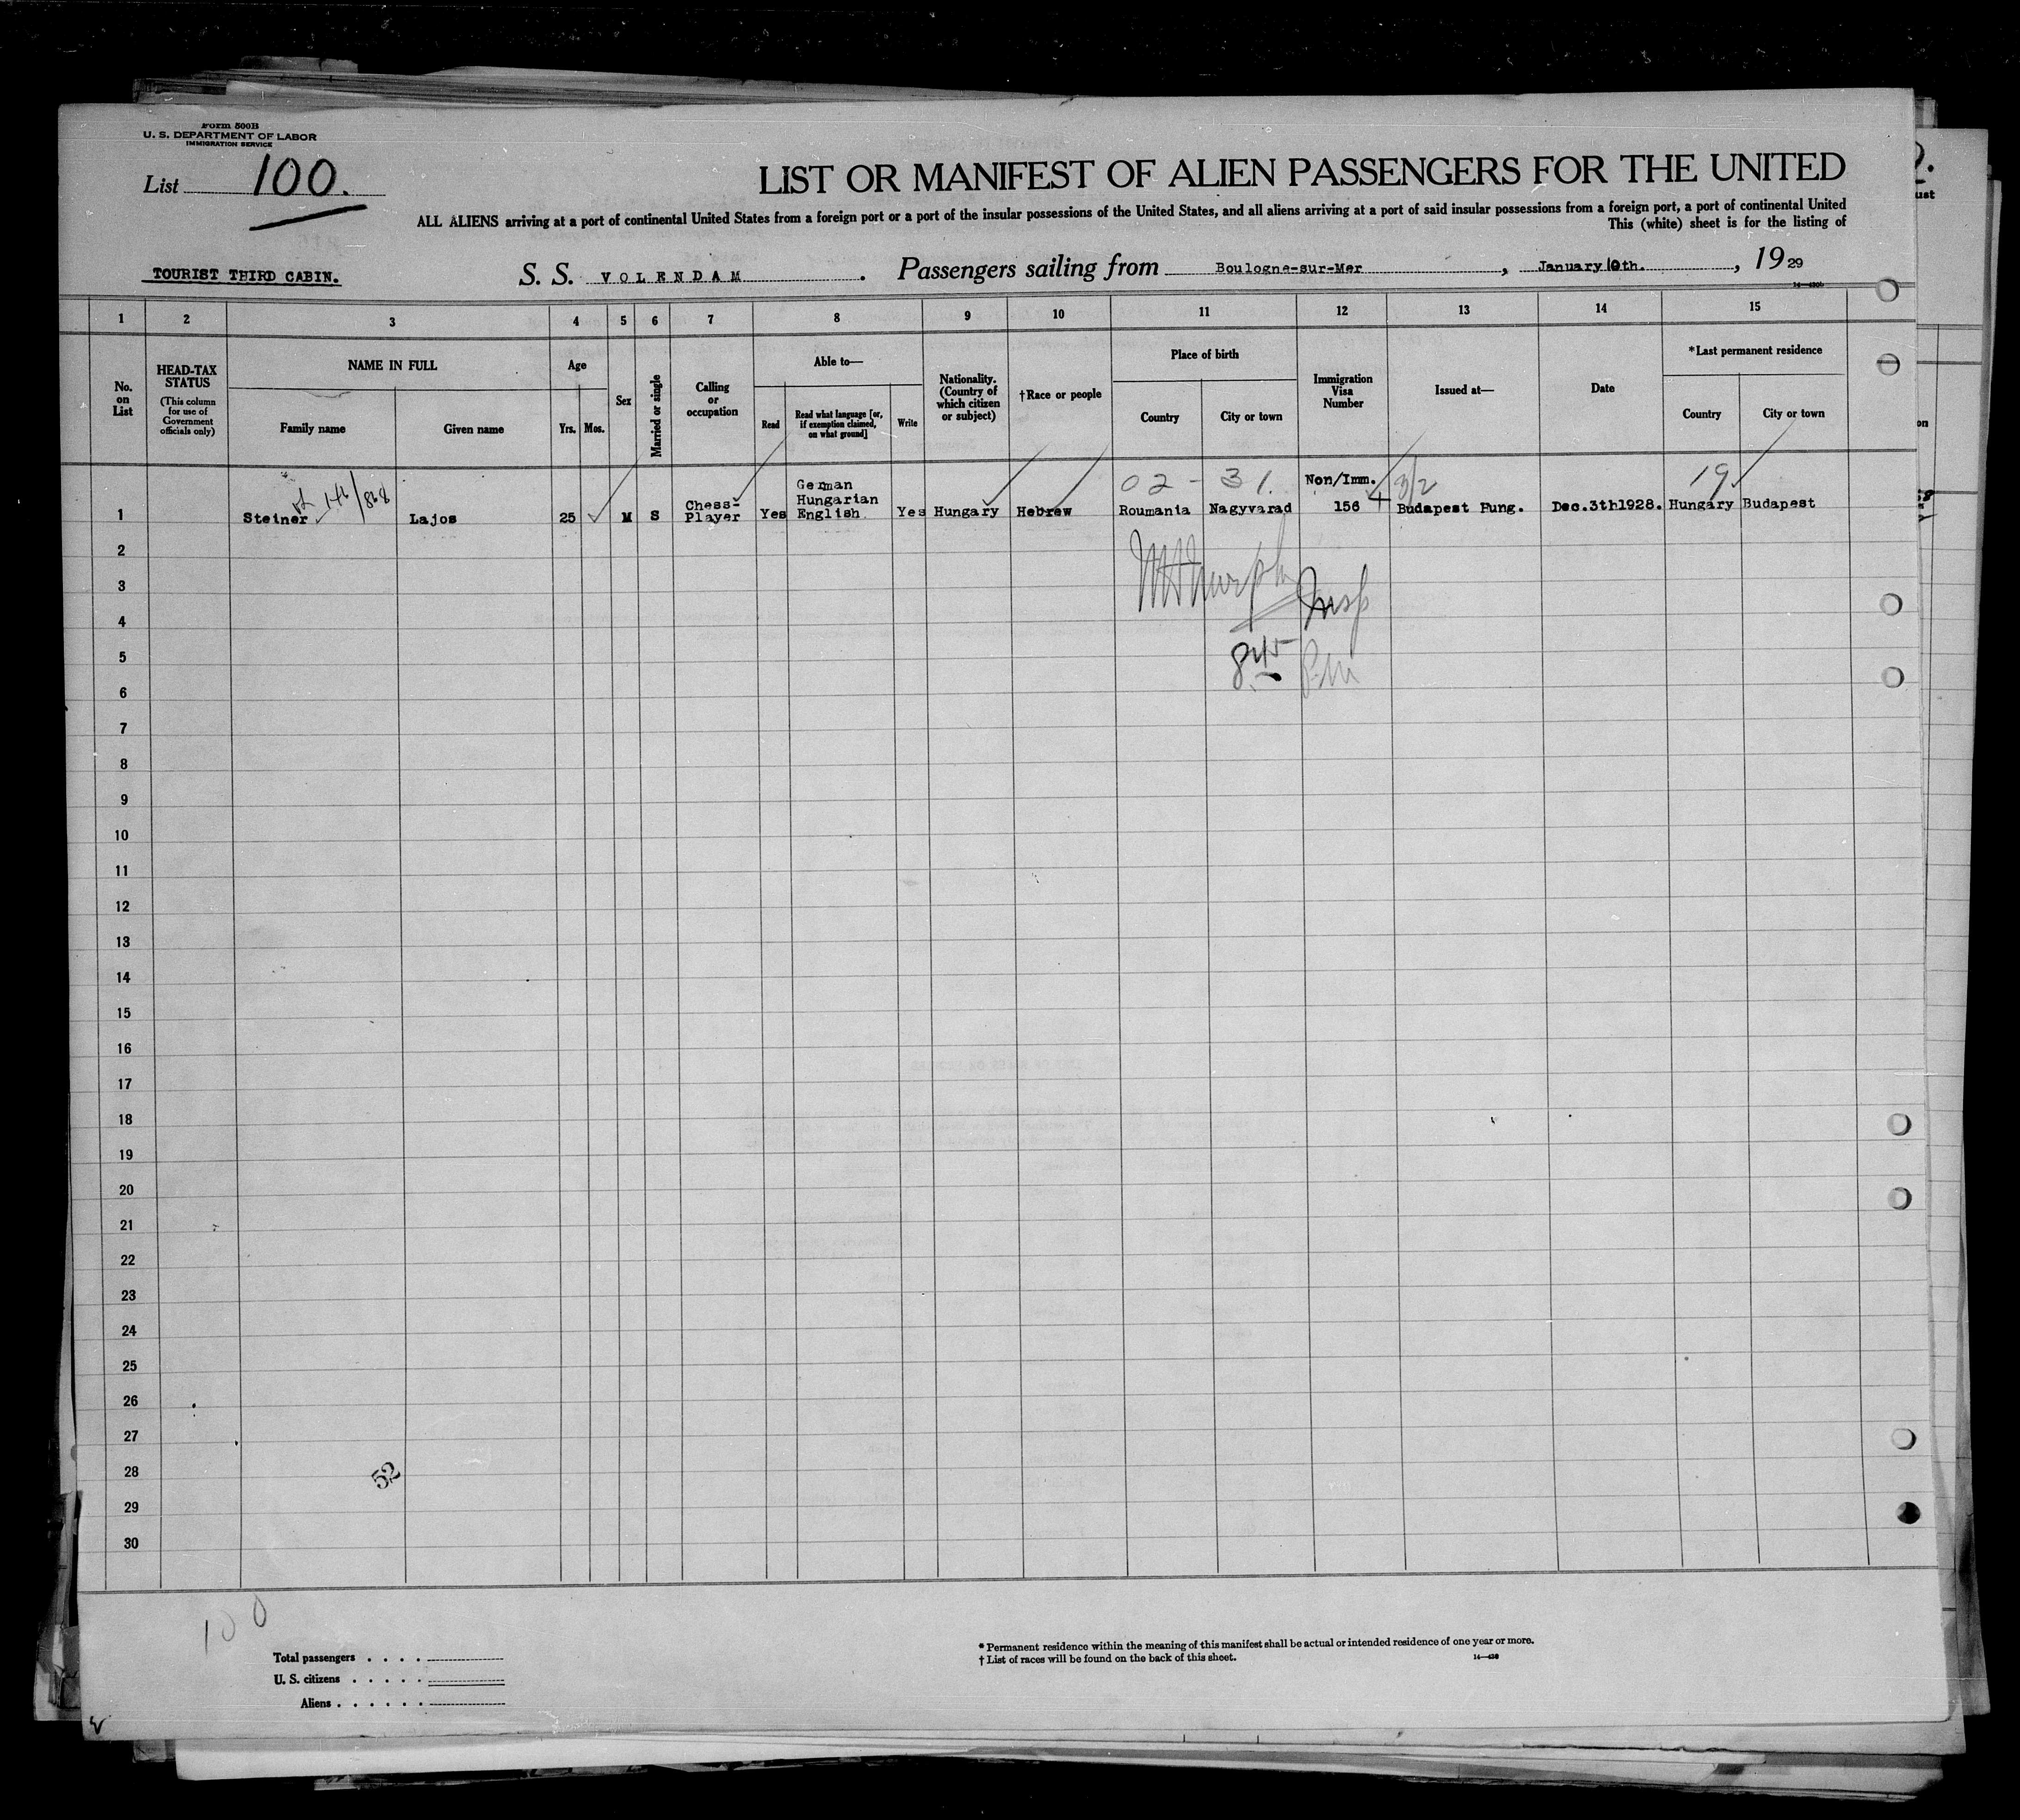 Form 500B
U. S. DEPARTMENT OF LABOR
IMMIGRATION SERVICE
List 100.
LIST OR MANIFEST OF ALIEN PASSENGERS FOR THE UNITED
ALL ALIENS arriving at a port of continental United States from a foreign port or a port of the insular possessions of the United States, and all aliens arriving at a port of said insular possessions from a foreign port, a port of continental United
This (white) sheet is for the listing of
TOURIST THIRD CABIN.
S. S. VOLENDAM . Passengers sailing from Boulogne-sur-Mer , January 10th. , 19 29
1 2 3 4 5 6 7 8 9 10 11 12 13 14 15
No. on List
HEAD-TAX STATUS
(This column for use of Government officials only)
NAME IN FULL
Family name
Given name
Age
Yrs. Mos.
Sex
Married or single
Calling or occupation
Able to—
Read
Read what language [or, if exemption claimed, on what ground]
Write
Nationality. (Country of which citizen or subject)
†Race or people
Place of birth
Country
City or town
Immigration Visa Number
Issued at—
Date
*Last permanent residence
Country
City or town
146/868
02 - 31.
3/2
19
1 Steiner Lajos 25 M S Chess-Player Yes German Hungarian English Yes Hungary Hebrew Roumania Nagyvarad Non/Imm. 156 Budapest Hung. Dec.3th1928. Hungary Budapest
2
3
Insp
4
5
6
7
8
9
10
11
12
13
14
15
16
17
18
19
20
21
22
23
24
25
26
27
28
52
29
30
100
Total passengers
U. S. citizens
Aliens
* Permanent residence within the meaning of this manifest shall be actual or intended residence of one year or more.
† List of races will be found on the back of this sheet.
14—430